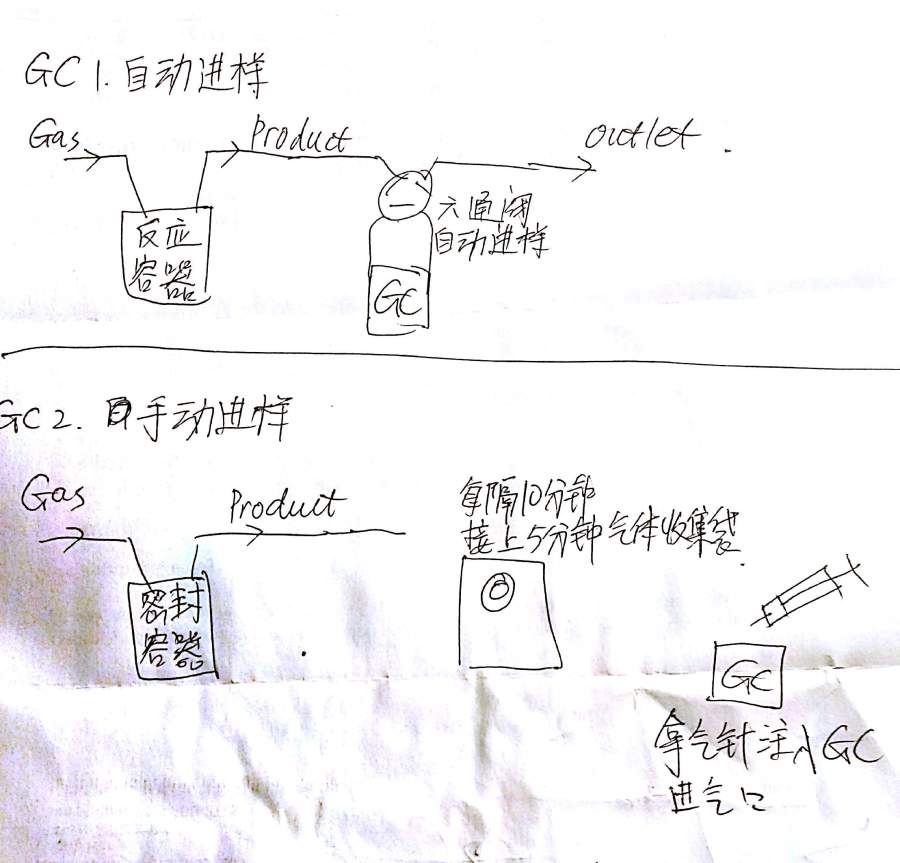 GC 1. 自动进样
Gas
Product
outlet
反应
容器
六通阀
自动进样
GC
GC 2. 手动进样
Gas
Product
每隔10分钟
接上5分钟气体收集袋
密封
容器
GC
拿气针注入GC
进气口